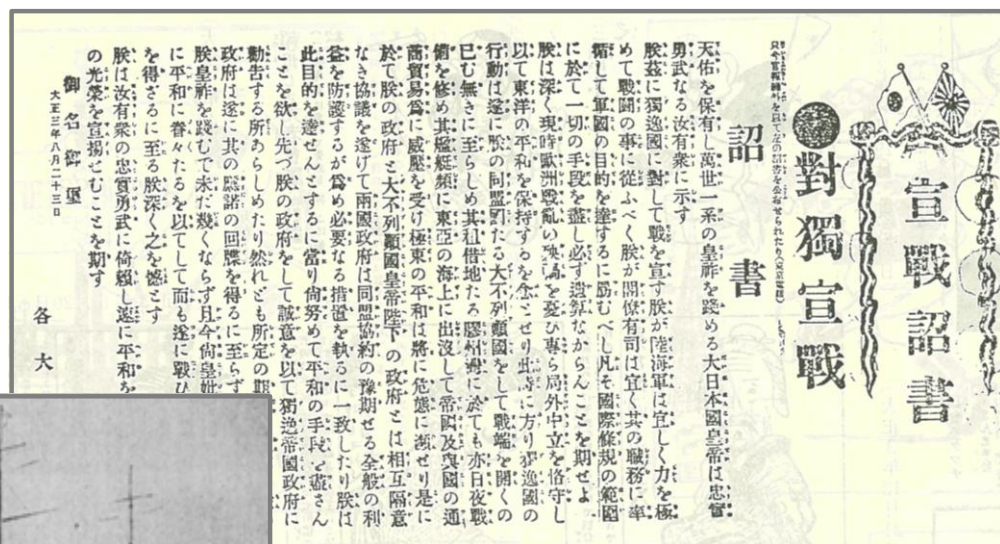 宣戰詔書
●對獨宣戰
詔書
天佑を保有し萬世一系の皇祚を踐める大日本國皇帝は忠實
勇武なる汝有衆に示す
朕玆に獨逸國に對して戰を宣す朕が陸海軍は宜しく力を極
めて戰鬪の事に從ふべく朕が百僚有司は宜く其の職務に率
循して軍國の目的を達するに勗むべし凡そ國際條規の範圍
に於て一切の手段を盡し必ず遺算なからんことを期せよ
朕は深く現時歐洲戰亂の殃禍を憂ひ專ら局外中立を恪守し
以て東洋の平和を保持するを念とせり此時に方り獨逸國の
行動は遂に朕の同盟國たる大不列顚國をして戰端を開くの
已む無きに至らしめ其租借地たる膠州灣に於ても亦日夜戰
備を修め其艦艇頻に東亞の海上に出沒して帝國及與國の通
商貿易爲に威壓を受け極東の平和は將に危殆に瀕せり是に
於て朕の政府と大不列顚國皇帝陛下の政府とは相互隔意
なき協議を遂げて兩國政府は同盟協約の豫期せる全般の利
益を防護するが爲め必要なる措置を執るに一致したり朕は
此目的を達せんとするに當り尙努めて平和の手段を盡さん
ことを欲し先づ朕の政府をして誠意を以て獨逸帝國政府に
勸告する所あらしめたり然れども所定の期
政府は遂に其の應諾の回牒を得るに至らず
朕皇祚を踐むで未だ幾くならず且今尙皇妣
に平和に眷々たるを以てして而も遂に戰ひ
を得ざるに至る朕深く之を憾す
朕は汝有衆の忠實勇武に倚賴し速に平和を
の光榮を宣揚せむことを期す
御名御璽
大正三年八月二十三日
各大